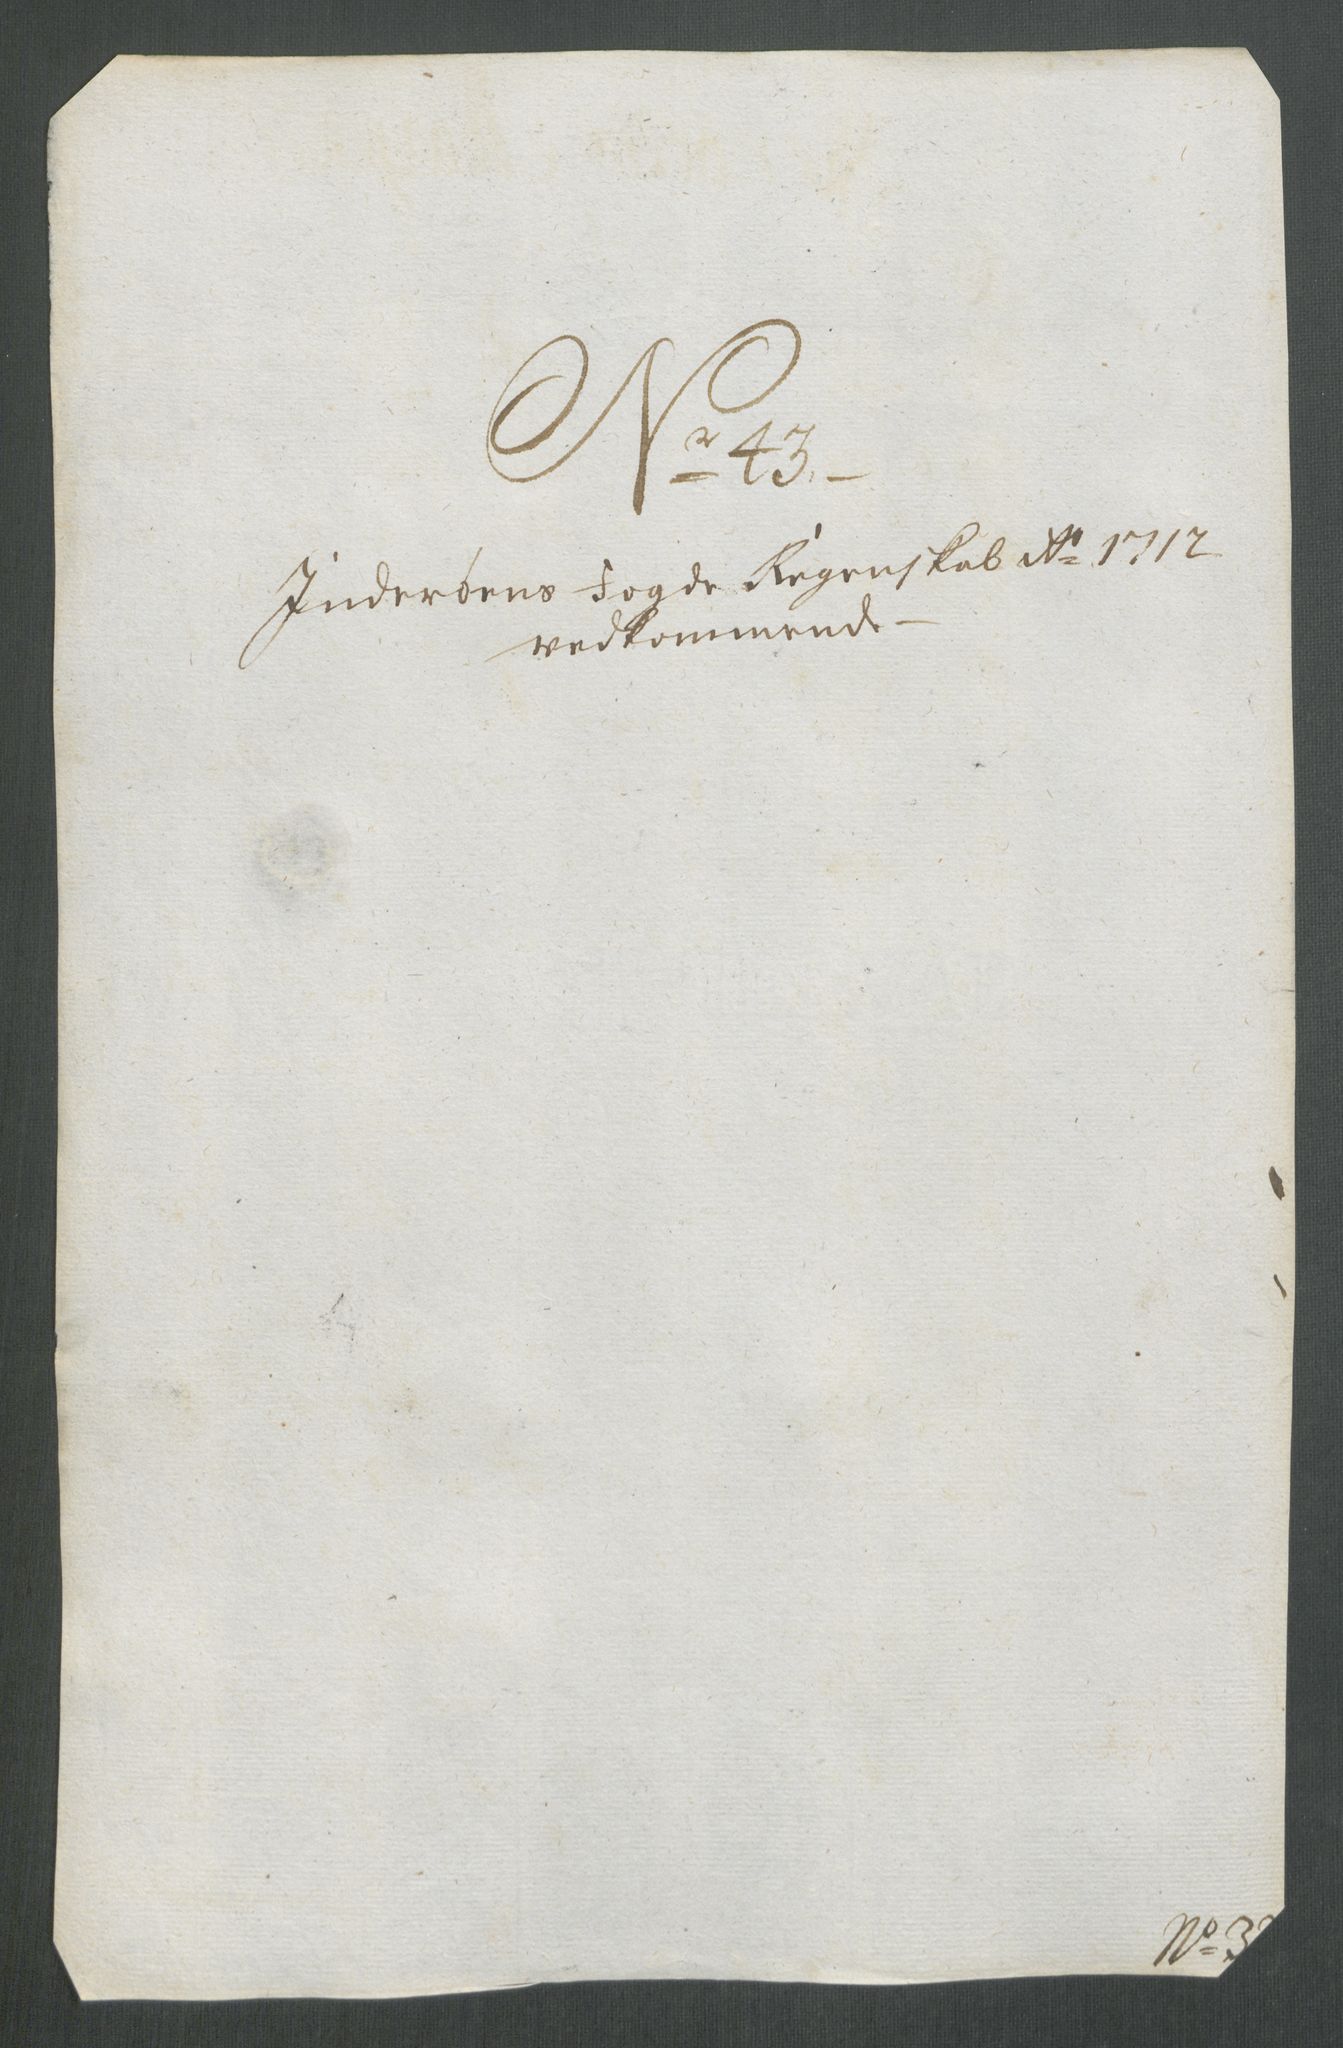 Nr 43.
Inderøens Fogde Regenskab Ao 1712
vedkommende
No 3